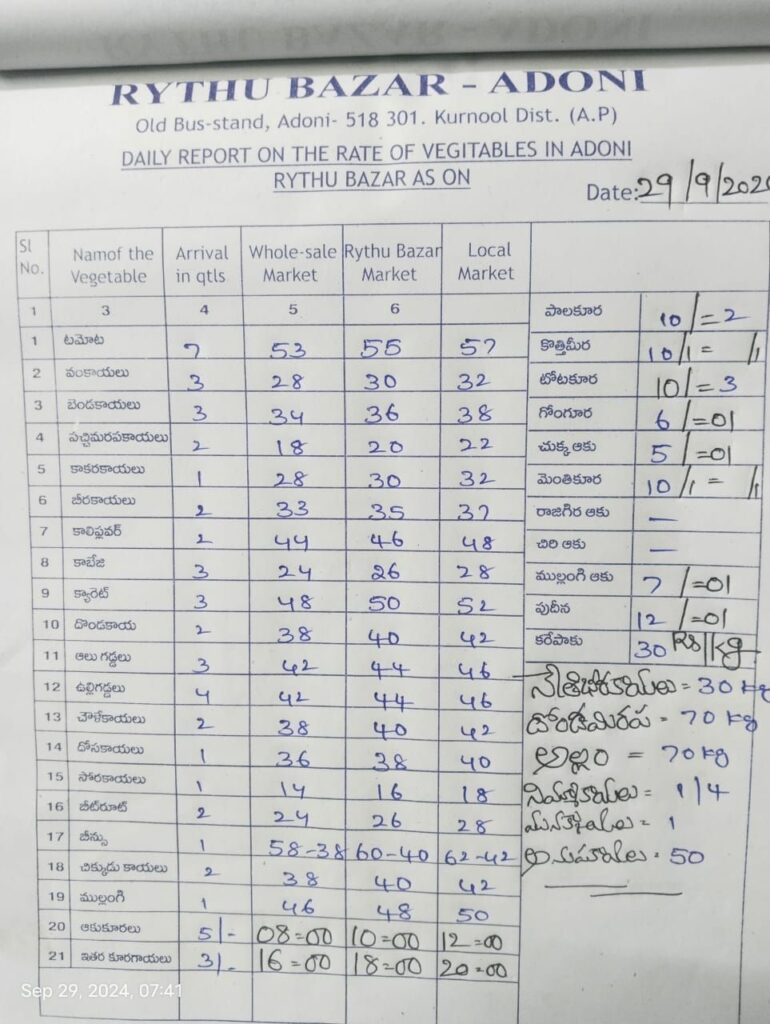 RYTHU BAZAR - ADONI
Old Bus-stand, Adoni- 518 301. Kurnool Dist. (A.P)
DAILY REPORT ON THE RATE OF VEGITABLES IN ADONI
RYTHU BAZAR AS ON
Date: 29/9/202
Sl No. Namof the Vegetable Arrival in qtls Whole-sale Market Rythu Bazar Market Local Market
1 3 4 5 6
1 టమోట 7 53 55 57
2 వంకాయలు 3 28 30 32
3 బెండకాయలు 3 34 36 38
4 పచ్చిమిరపకాయలు 2 18 20 22
5 కాకరకాయలు 1 28 30 32
6 బీరకాయలు 2 33 35 37
7 కాలిఫ్లవర్ 2 44 46 48
8 కాబేజి 3 24 26 28
9 క్యారెట్ 3 48 50 52
10 దొండకాయ 2 38 40 42
11 ఆలు గడ్డలు 3 42 44 46
12 ఉల్లిగడ్డలు 4 42 44 46
13 చౌళేకాయలు 2 38 40 42
14 దోసకాయలు 1 36 38 40
15 సోరకాయలు 1 14 16 18
16 బీట్‌రూట్ 2 24 26 28
17 బీన్సు 1 58-38 60-40 62-42
18 చిక్కుడు కాయలు 2 38 40 42
19 ముల్లంగి 1 46 48 50
20 ఆకుకూరలు 5/- 08=00 10=00 12=00
21 ఇతర కూరగాయలు 3/- 16=00 18=00 20=00
పాలకూర 10/=2
కొత్తిమీర 10/1= /1
టోటకూర 10/=3
గోంగూర 6/=01
చుక్క ఆకు 5/=01
మెంతికూర 10/1= /1
రాజగిర ఆకు —
చిరి ఆకు —
ముల్లంగి ఆకు 7/=01
పుదీన 12/=01
కరేపాకు 30 Rs/kg
= 30 kg
= 70 kg
అల్లం = 70 kg
= 1/4
= 1
= 50
Sep 29, 2024, 07:41